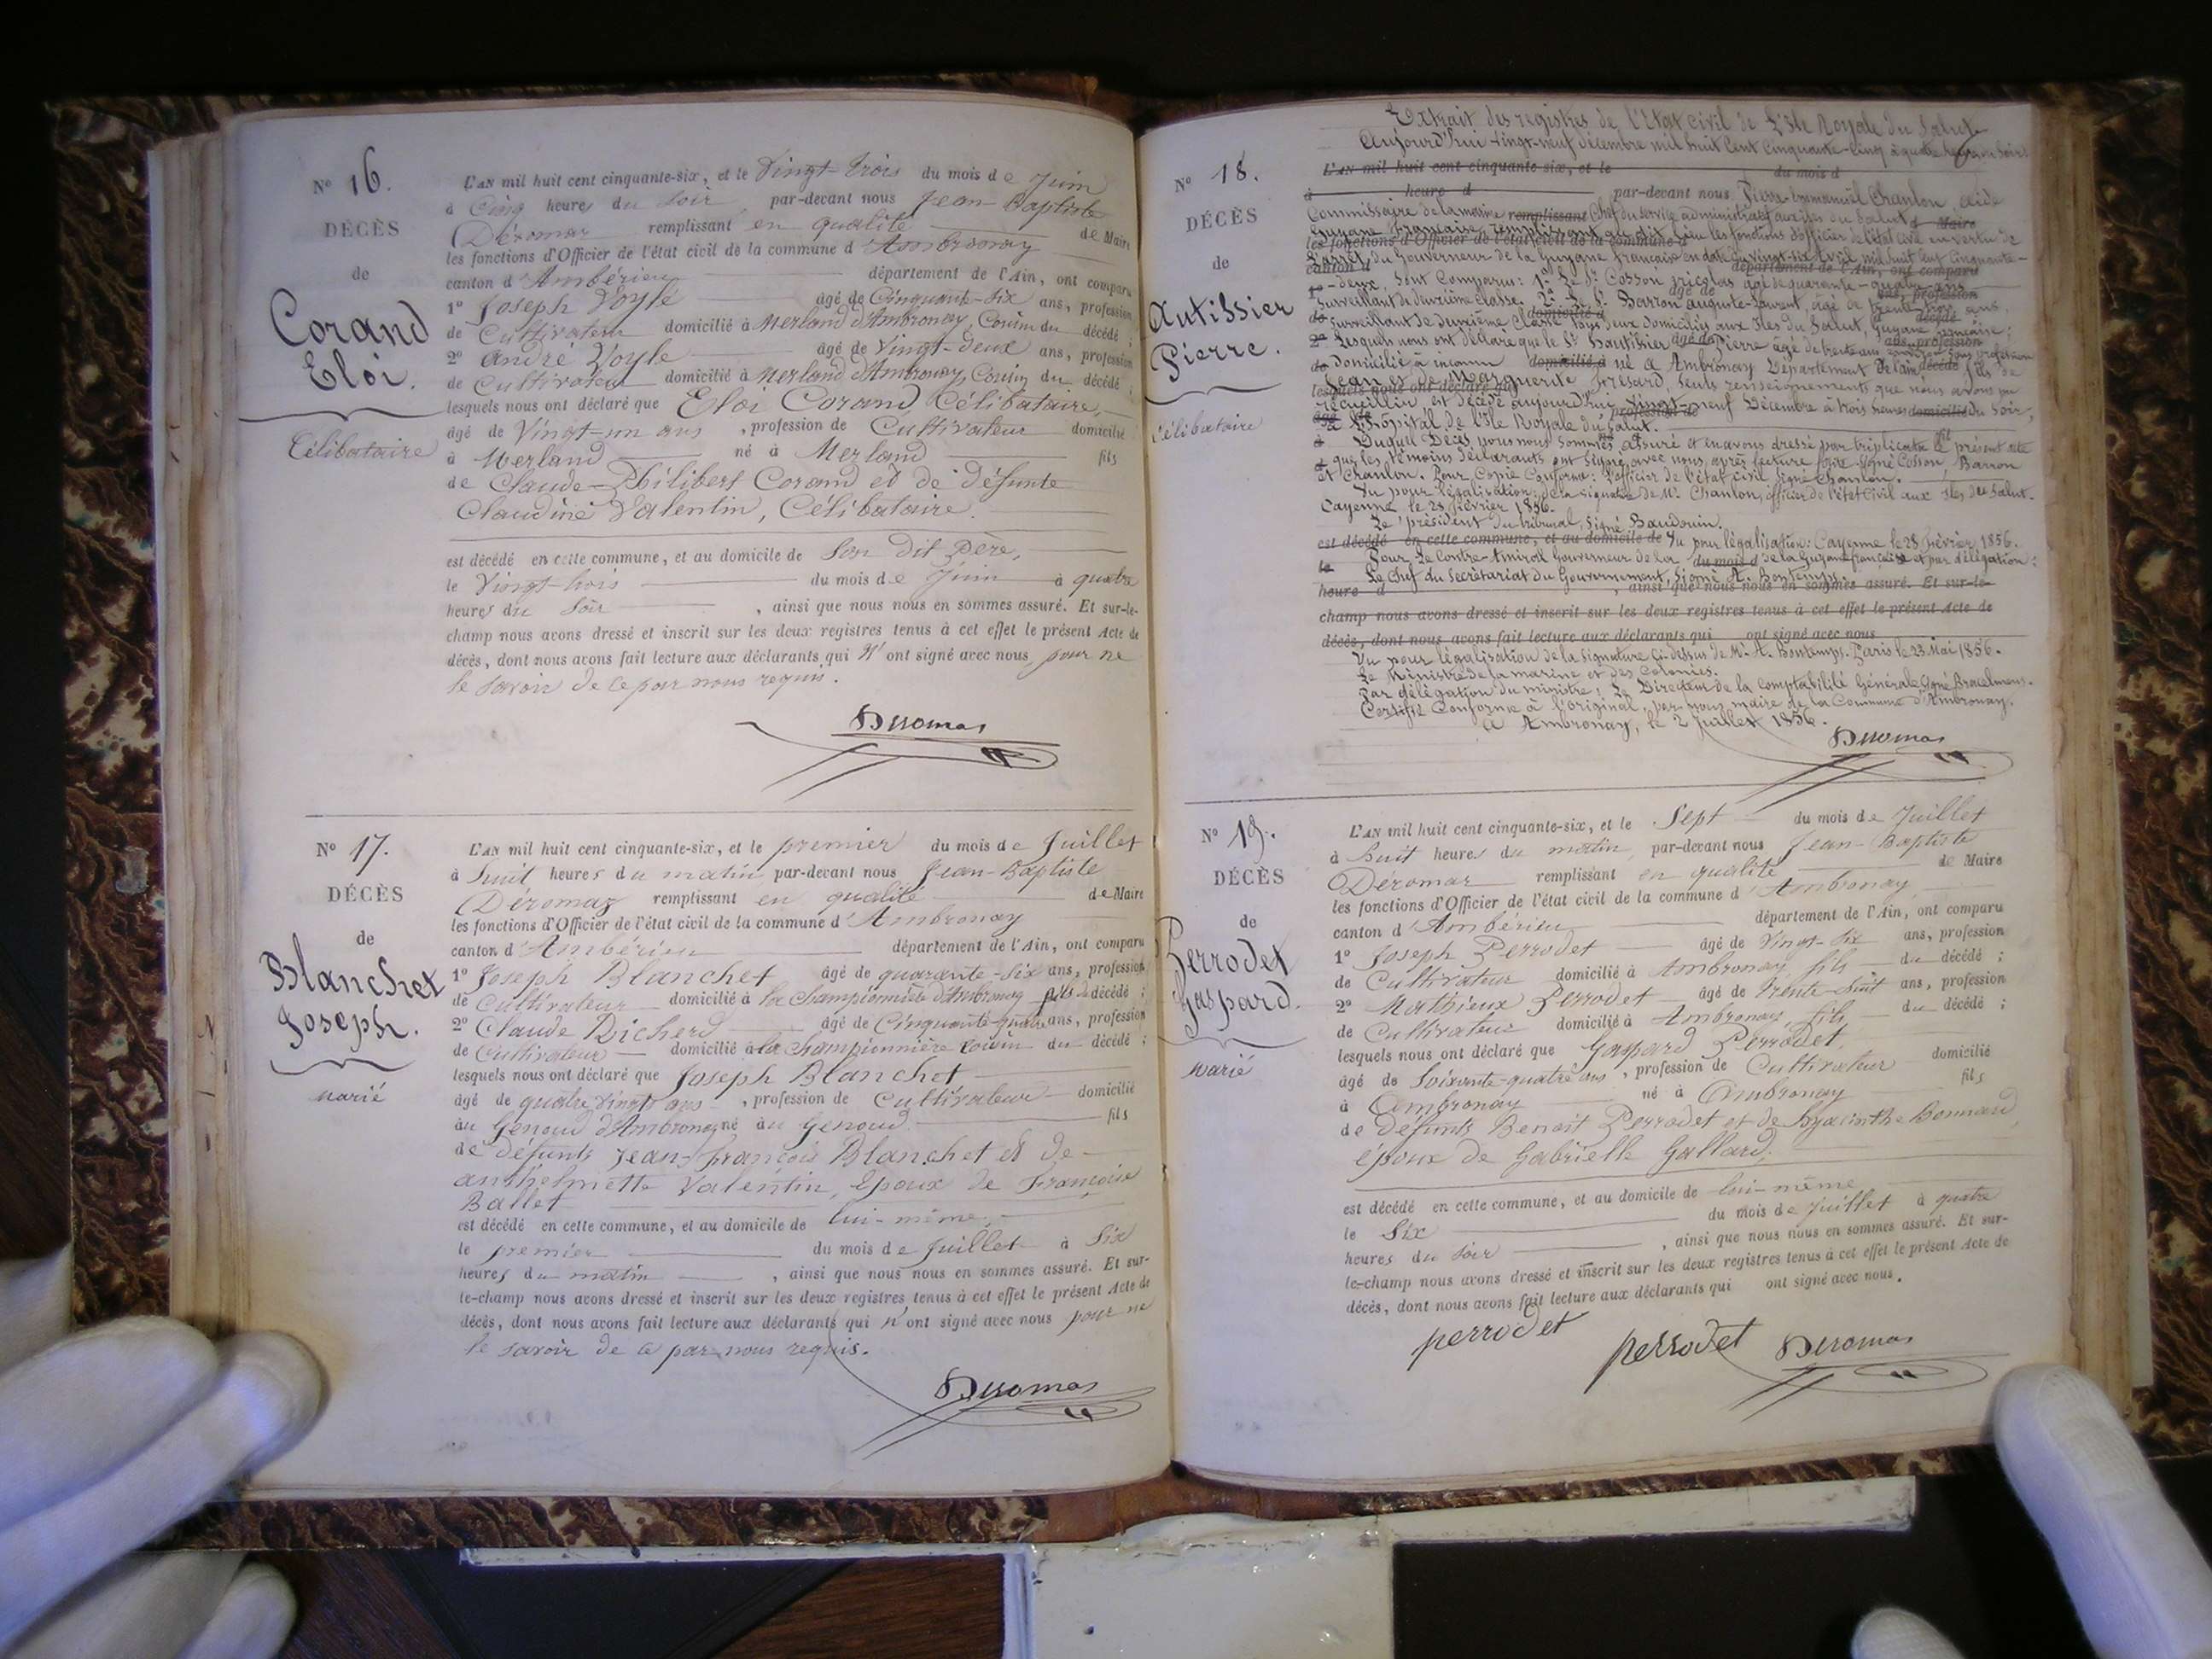 N° 16.
DÉCÈS
de
Corand
Eloi.
Célibataire
L'AN mil huit cent cinquante-six, et le Vingt-trois du mois de Juin
à Cinq heures du Soir, par-devant nous Jean-Baptiste
Déromas remplissant en qualité de Maire
les fonctions d'Officier de l'état civil de la commune d'Ambronay
canton d'Ambérieu département de l'Ain, ont comparu
1° Joseph âgé de Cinquante-six ans, profession
de Cultivateur domicilié à Merland d'Ambronay, Cousin du décédé ;
2° André âgé de Vingt-deux ans, profession
de Cultivateur domicilié à Merland d'Ambronay, Cousin du décédé ;
lesquels nous ont déclaré que Eloi Corand, Célibataire,
âgé de Vingt-un ans, profession de Cultivateur domicilié
à Merland né à Merland fils
de Claude-Philibert Corand et de défunte
Claudine Valentin, Célibataire.
est décédé en cette commune, et au domicile de Son dit Père,
le Vingt-trois du mois de Juin à quatre
heures du Soir, ainsi que nous nous en sommes assuré. Et sur-le-
champ nous avons dressé et inscrit sur les deux registres tenus à cet effet le présent Acte de
décès, dont nous avons fait lecture aux déclarants qui n'ont signé avec nous pour ne
le savoir de ce par nous requis.
Déromas
N° 17.
DÉCÈS
de
Blanchet
Joseph.
marié
L'AN mil huit cent cinquante-six, et le premier du mois de Juillet
à huit heures du matin par-devant nous Jean-Baptiste
Déromas remplissant en qualité de Maire
les fonctions d'Officier de l'état civil de la commune d'Ambronay
canton d'Ambérieu département de l'Ain, ont comparu
1° Joseph Blanchet âgé de quarante-six ans, profession
de Cultivateur domicilié à la Championnière d'Ambronay fils du décédé ;
2° Claude Richerd âgé de Cinquante-quatre ans, profession
de Cultivateur domicilié à la Championnière voisin du décédé ;
lesquels nous ont déclaré que Joseph Blanchet
âgé de quatre vingts ans, profession de Cultivateur domicilié
au Genoud d'Ambronay né au Genoud fils
de défunts Jean-François Blanchet et de
anthelmette Valentin, Epoux de Françoise
Ballet
est décédé en cette commune, et au domicile de lui-même,
le premier du mois de Juillet à Six
heures du matin, ainsi que nous nous en sommes assuré. Et sur-
le-champ nous avons dressé et inscrit sur les deux registres tenus à cet effet le présent Acte de
décès, dont nous avons fait lecture aux déclarants qui n'ont signé avec nous pour ne
le savoir de ce par nous requis.
Déromas
N° 18.
DÉCÈS
de
Autissier
Pierre.
célibataire
Extrait des registres de l'Etat civil de l'Isle Royale du Salut
Aujourd'hui vingt-neuf décembre mil huit cent cinquante-cinq à quatre heures du Soir
L'AN mil huit cent cinquante-six, et le du mois d
à heure d par-devant nous Pierre Emmanuël Chanlon, aide
Commissaire de la marine remplissant Chef du service administratif aux îles du Salut d Maire
Guyane française, remplissant au dit lieu les fonctions d'officier de l'état civil en vertu de
les fonctions d'Officier de l'état civil de la commune d
l'arrêté du Gouverneur de la Guyane française en date du vingt-six Avril mil huit cent cinquante-
canton d département de l'Ain, ont comparu
deux, sont Comparus: 1° Le Sr. Cosson Nicolas âgé de quarante-quatre ans
Surveillant de deuxième classe. 2° Le Sr. Barron auguste-Laurent, âgé de trente ans,
Surveillant de deuxième Classe tous deux domiciliés aux Iles du Salut, Guyane française ;
Lesquels nous ont déclaré que le Sr Pierre âgé de trente ans sans profession
Domicilié à inconnu né à Ambronay Département de l'ain fils de
Jean et de Marguerite seuls renseignements que nous avons pu
lesquels nous ont déclaré que
recueillir est décédé aujourd'hui vingt-neuf Décembre à trois heures du Soir,
à l'hôpital de l'Isle Royale du Salut.
Duquel Décès, nous nous sommes assuré et en avons dressé par triplicata le présent acte
que les témoins déclarants ont signé avec nous, après lecture faite signé Cosson, Barron
et Chanlon. Pour Copie Conforme: l'officier de l'état civil signé Chanlon.
Vu pour légalisation de la signature de Mr. Chanlon, officier de l'état civil aux Iles du Salut.
Cayenne le 28 février 1856.
Le président du tribunal, signé Baudouin.
est décédé en cette commune, et au domicile de Vu pour légalisation: Cayenne le 28 février 1856.
Pour Le Contre-Amiral Gouverneur de la du mois d de la Guyane française et par délégation :
Le Chef du Secrétariat du Gouvernement, Signé A. Bontemps.
heure d , ainsi que nous nous en sommes assuré. Et sur-le-
champ nous avons dressé et inscrit sur les deux registres tenus à cet effet le présent Acte de
décès, dont nous avons fait lecture aux déclarants qui ont signé avec nous
Vu pour légalisation de la Signature ci-dessus de Mr. A. Bontemps. Paris le 23 Mai 1856.
Le Ministre de la marine et des Colonies.
Par délégation du ministre: Le Directeur de la Comptabilité Générale Signé
Certifié Conforme à l'original, par nous maire de la Commune d'Ambronay.
à Ambronay, le 2 Juillet 1856.
Déromas
N° 19.
DÉCÈS
de
Perrodet
Gaspard.
marié
L'AN mil huit cent cinquante-six, et le Sept du mois de Juillet
à huit heures du matin, par-devant nous Jean-Baptiste
Déromas remplissant en qualité de Maire
les fonctions d'Officier de l'état civil de la commune d'Ambronay
canton d'Ambérieu département de l'Ain, ont comparu
1° Joseph Perrodet âgé de vingt-six ans, profession
de Cultivateur domicilié à Ambronay, fils du décédé ;
2° Mathieux Perrodet âgé de trente-huit ans, profession
de Cultivateur domicilié à Ambronay, fils du décédé ;
lesquels nous ont déclaré que Gaspard Perrodet,
âgé de Soixante-quatre ans, profession de Cultivateur domicilié
à Ambronay né à Ambronay fils
de défunts Benoit Perrodet et de hyacinthe Bonnard,
époux de Gabrielle Gallard,
est décédé en cette commune, et au domicile de lui-même
le Six du mois de Juillet à quatre
heures du soir, ainsi que nous nous en sommes assuré. Et sur-
le-champ nous avons dressé et inscrit sur les deux registres tenus à cet effet le présent Acte de
décès, dont nous avons fait lecture aux déclarants qui ont signé avec nous.
perrodet perrodet Déromas